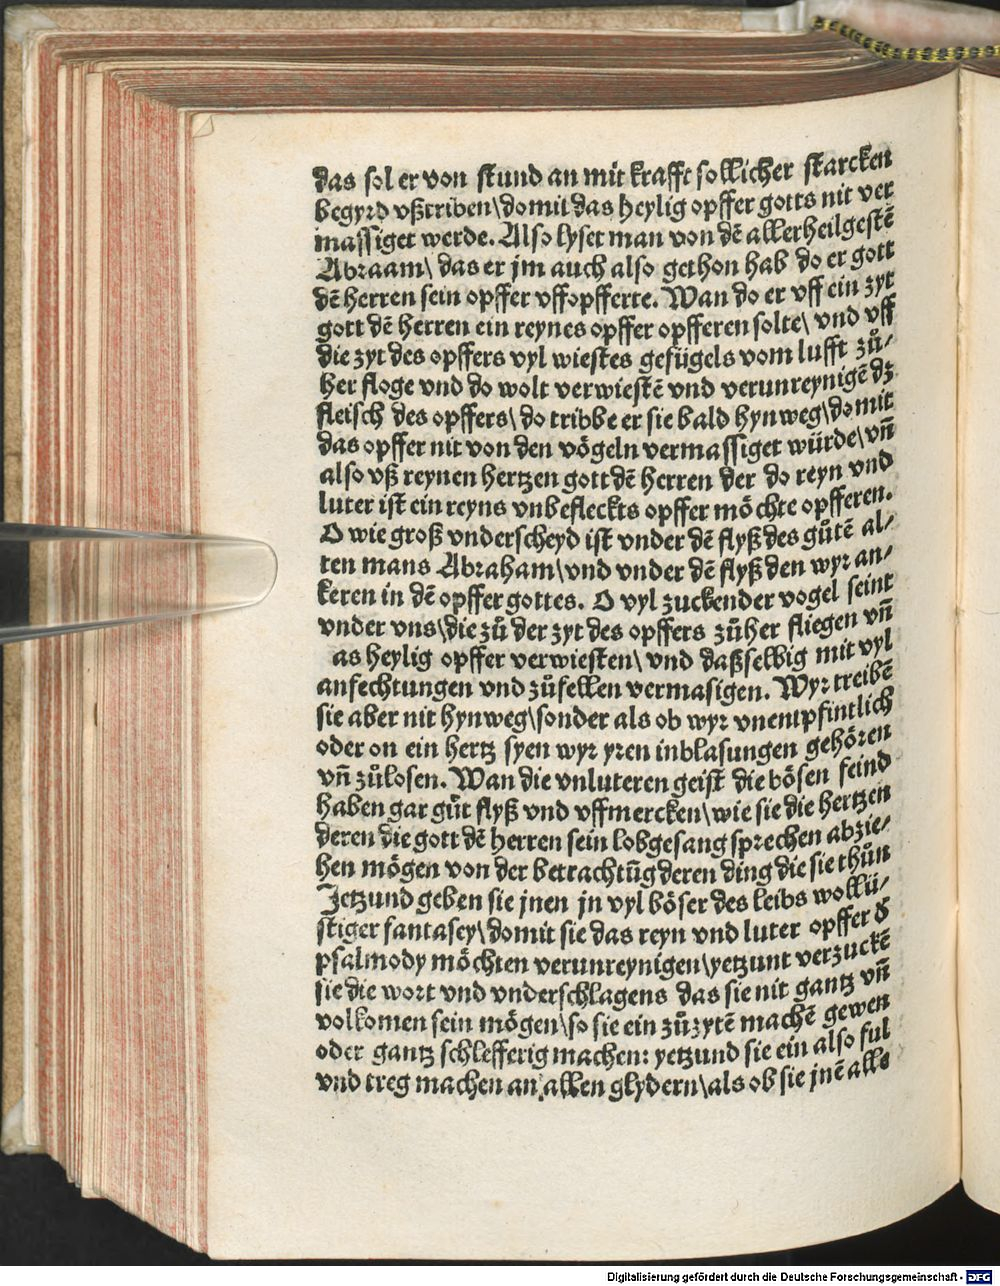 das sol er von stund an mit krafft sollicher starcken
begyrd vßtriben\ domit das heylig opffer gotts nit ver
massiget werde. Also lyset man von dē allerheilgestē
Abraam\ das er jm auch also gethon hab do er gott
dē herren sein opffer vffopfferte. Wan do er vff ein zyt
gott dē herren ein reynes opffer opfferen solte\ vnd vff
die zyt des opffers vyl wiestes gefügels vom lufft zů/
her floge vnd do wolt verwiestē vnd verunreynigē dz
fleisch des opffers\ do tribbe er sie bald hynweg\ domit
das opffer nit von den vögeln vermassiget würde\ vn̄
also vß reynen hertzen gott dē herren der do reyn vnd
luter ist ein reyns vnbefleckts opffer möchte opfferen.
O wie groß vnderscheyd ist vnder dē flyß des gůtē al/
ten mans Abraham\ vnd vnder dē flyß den wyr an/
keren in dē opffer gottes. O vyl zuckender vogel seint
vnder vns\ die zů der zyt des opffers zůher fliegen vn̄
as heylig opffer verwiesten\ vnd daßselbig mit vyl
anfechtungen vnd zůfellen vermasigen. Wyr treibē
sie aber nit hynweg\ sonder als ob wyr vnentpfintlich
oder on ein hertz syen wyr yren inblasungen gehören
vn̄ zůlosen. Wan die vnluteren geist die bösen feind
haben gar gůt flyß vnd vffmercken\ wie sie die hertzen
deren die gott dē herren sein lobgesang sprechen abzie/
hen mögen von der betrachtūg deren ding die sie thůn
Jetzund geben sie jnen jn vyl böser des leibs wollü/
stiger fantasey\ domit sie das reyn vnd luter opffer d̕
psalmody möchten verunreynigen\ yetzunt verzuckē
sie die wort vnd vnderschlagens das sie nit gantz vn̄
volkomen sein mögen\ so sie ein zůzytē machē gewen
oder gantz schlefferig machen: yetzund sie ein also ful
vnd treg machen an allen glydern\ als ob sie jnē alle
Digitalisierung gefördert durch die Deutsche Forschungsgemeinschaft - DFG